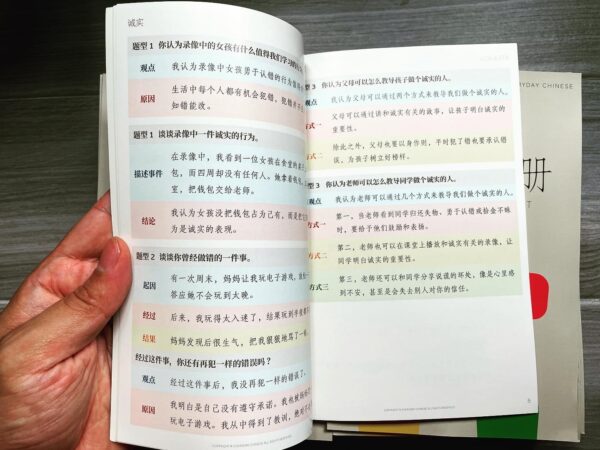 诚实
题型 1 你认为录像中的女孩有什么值得我们学习的
观点 我认为录像中女孩勇于认错的行为值得
原因 生活中每个人都有机会犯错，犯错并不
知错能改。
题型 1 谈谈录像中一件诚实的行为。
描述事件 在录像中，我看到一位女孩在食堂
包，而四周却没有任何人。她拿着钱
室，把钱包交给老师。
结论 我认为女孩没把钱包占为己有，而是把
为是诚实的表现。
题型 2 谈谈你曾经做错的一件事。
起因 有一次周末，妈妈让我玩电子游戏，
答应她不会玩到太晚。
经过 后来，我玩得太入迷了，结果玩到半夜
结果 妈妈发现后很生气，把我狠狠地骂了一
经过这件事，你还有再犯一样的错误吗？
观点 经过这件事后，我没再犯一样的错误了。
原因 我明白是自己没有遵守承诺。我也被妈妈
玩电子游戏。我从中得到了教训，绝对
型 3 你认为父母可以怎么教导孩子做个诚实的人。
观点 我认为父母可以通过两个方式来教导我们做个诚实的人。
方式一 父母可以通过讲和诚实有关的故事，让孩子明白诚实的
重要性。
方式二 除此之外，父母也要以身作则，平时犯了错也要承认错
误，为孩子树立好榜样。
题型 3 你认为老师可以怎么教导同学做个诚实的人。
观点 我认为老师可以通过几个方式来教导我们做个诚实的人。
方式一 第一，当老师看到同学归还失物、勇于认错或拾金不昧
时，要给于他们鼓励和表扬。
方式二 第二，老师也可以在课堂上播放和诚实有关的录像，让
同学明白诚实的重要性。
方式三 第三，老师还可以和同学分享说谎的坏处，像是心里感
到不安，甚至是会失去别人对你的信任。
YDAY CHINESE
册